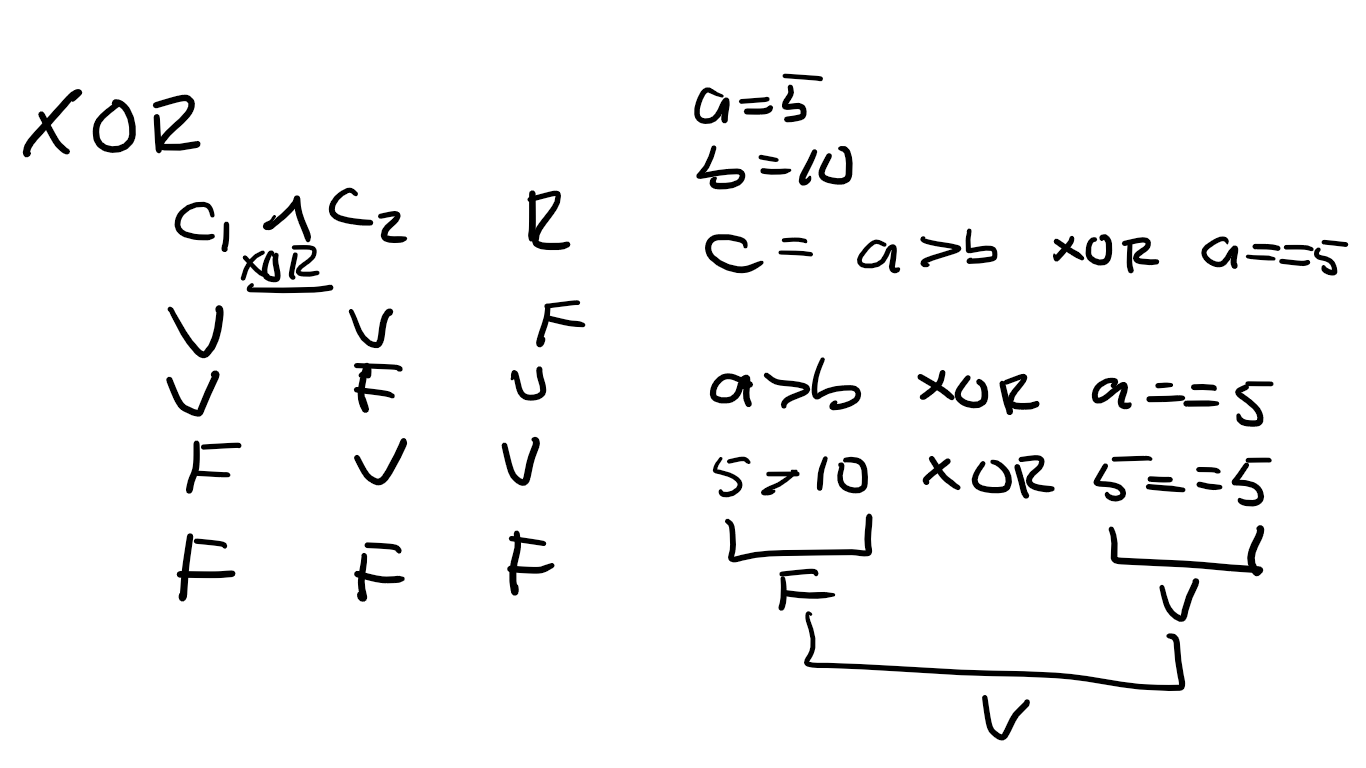 XOR
C1 ^ C2 R
XOR
V V F
V F V
F V V
F F F
a=5
b=10
C = a>b XOR a==5
a>b XOR a==5
5>10 XOR 5==5
F V
V